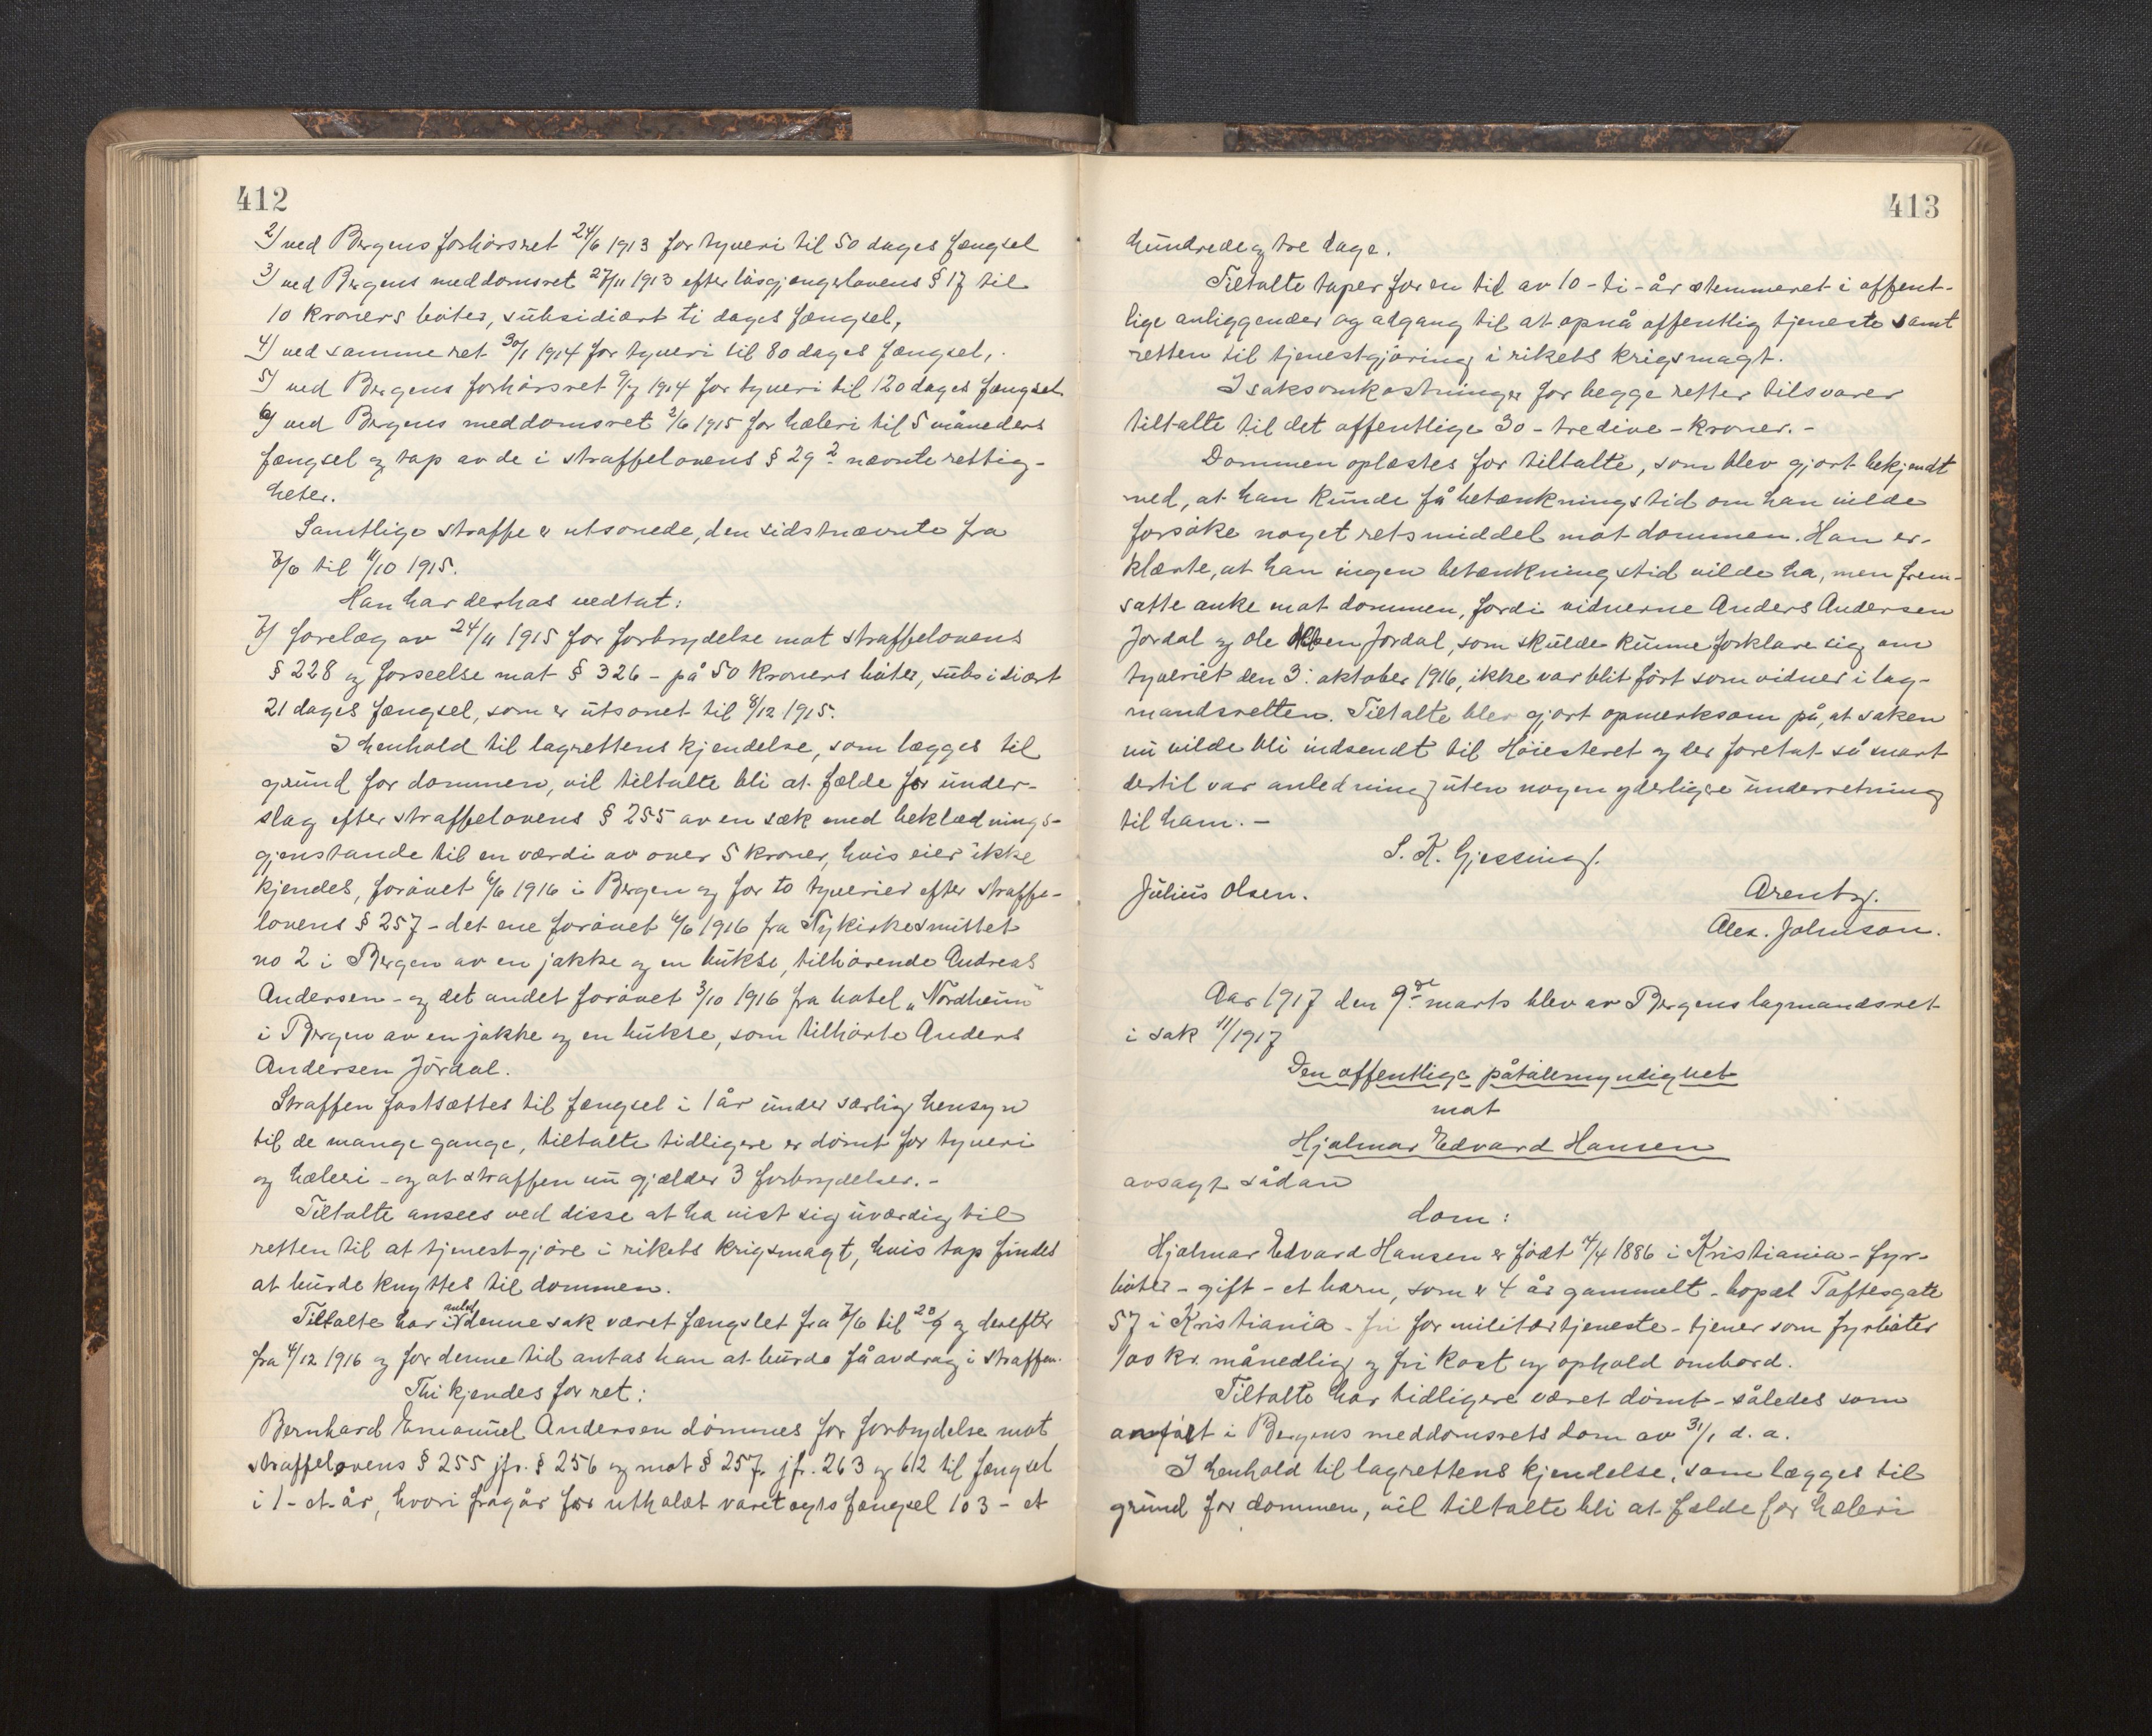 412
2) ved Bergens forhørsret 24/6 1913 for tyveri til 50 dages fængsel
3) ved Bergens meddomsret 27/11 1913 efter løsgjængerlovens § 17 til
10 kroners bøter, subsidiært ti dages fængsel,
4) ved samme ret 30/1 1914 for tyveri til 80 dages fængsel,
5) ved Bergens forhørsret 9/7 1914 for tyveri til 120 dages fængsel
6) ved Bergens meddomsret 2/6 1915 for hæleri til 5 måneders
fængsel og tap av de i straffelovens § 29 2 nævnte rettig-
heter.
Samtlige straffe er utsonede, den sidstnævnte fra
7/6 til 11/10 1915.
Han har derhos vedtat:
7) forelæg av 24/11 1915 for forbrydelse mot straffelovens
§ 228 og forseelse mot § 326 - på 50 kroners bøter, subsidiært
21 dages fængsel, som er utsonet til 8/12 1915.
I henhold til lagrettens kjendelse, som lægges til
grund for dommen, vil tiltalte bli at fælde for under-
slag efter straffelovens § 255 av en sæk med beklædnings-
gjenstande til en værdi av over 5 kroner, hvis eier ikke
kjendes, forøvet 6/6 1916 i Bergen og for to tyverier efter straffe-
lovens § 257 - det ene forøvet 6/6 1916 fra Nykirkesmuttet
no 2 i Bergen av en jakke og en bukse, tilhørende Andreas
Andersen - og det andet forøvet 3/10 1916 fra hotel „Nordheim"
i Bergen av en jakke og en bukse, som tilhørte Anders
Andersen Jordal.
Straffen fastsættes til fængsel i 1 år under særlig hensyn
til de mange gange, tiltalte tidligere er dømt for tyveri
og hæleri - og at straffen nu gjælder 3 forbrydelser. -
Tiltalte ansees ved disse at ha vist sig uværdig til
retten til at tjenestgjøre i rikets krigsmagt, hvis tap findes
at burde knyttes til dommen.
Tiltalte har i anled denne sak været fængslet fra 7/6 til 20/9 og derefter
fra 4/12 1916 og for denne tid antas han at burde få avdrag i straffen.
Thi kjendes for ret:
Bernhard Emanuel Andersen dømmes for forbrydelse mot
straffelovens § 255 jfr. § 256 og mot § 257 jfr. 263 og 62 til fængsel
i 1 - et - år, hvori fragår for utholdt varetægtsfængsel 103 - et
413
hundrede og tre dage.
Tiltalte taper for en tid av 10 - ti - år stemmeret i offent-
lige anliggender og adgang til at opnå offentlig tjeneste samt
retten til tjenestgjøring i rikets krigsmagt.
I saksomkostninger for begge retter tilsvarer
tiltalte til det offentlige 30 - tredive - kroner. -
Dommen oplæstes for tiltalte, som blev gjort bekjendt
med, at han kunde få betænkningstid om han vilde
forsøke noget retsmiddel mot dommen. Han er-
klærte, at han ingen betænkningstid vilde ha, men frem-
satte anke mot dommen, fordi vidnerne Anders Andersen
Jordal og Ole Olsen Jordal, som skulde kunne forklare sig om
tyveriet den 3. oktober 1916, ikke var blit ført som vidner i lag-
mandsretten. Tiltalte blev gjort opmerksom på, at saken
nu vilde bli indsendt til Höiesteret og der foretat så snart
dertil var anledning uten nogen yderligere underretning
til ham. -
S. K. Gjessing.
Julius Olsen.
Arentz.
Alex. Johnson.
Aar 1917 den 9de marts blev av Bergens lagmandsret
i sak 11/1917
Den offentlige påtalemyndighet
mot
Hjalmar Edvard Hansen
avsagt sådan
dom:
Hjalmar Edvard Hansen er født 14/4 1886 i Kristiania - fyr-
bøter - gift - et barn, som er 4 år gammelt - bopæl Toftesgate
57 i Kristiania - fri for militærtjeneste - tjener som fyrbøter
100 kr. månedlig og fri kost og ophold ombord.
Tiltalte har tidligere været dømt - således som
anført i Bergens meddomsrets dom av 31/1 d. a.
I henhold til lagrettens kjendelse, som lægges til
grund for dommen, vil tiltalte bli at fælde for hæleri